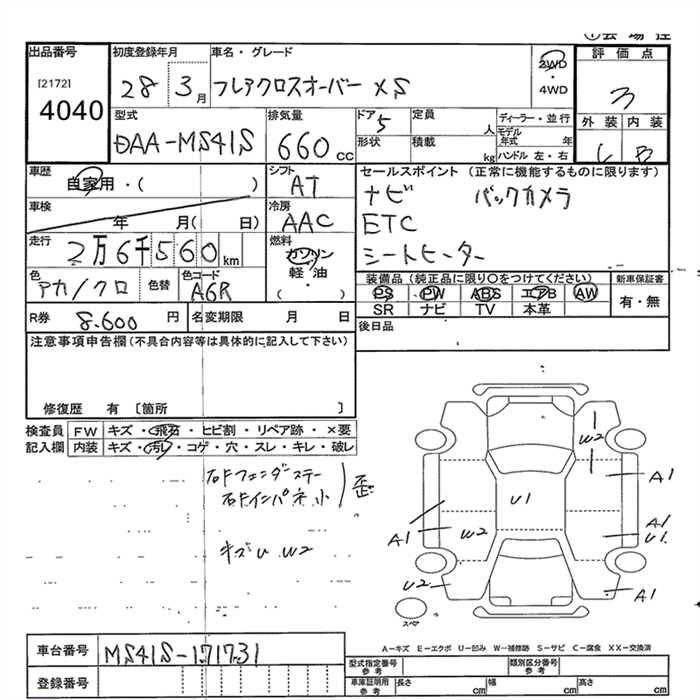 出品番号 初度登録年月 車名・グレード 評価点
[2172] 4040 28 3月 フレアクロスオーバー XS 2WD ・ 4WD 3
型式 排気量 ドア 5 定員 人 ディーラー・並行 外装 内装
DAA-MS41S 660cc 形状 積載 kg モデル年式 年 ハンドル 左・右 B
車歴 自家用・( ) シフト AT セールスポイント (正常に機能するものに限ります)
車検 年 月( 日) 冷房 AAC ナビ バックカメラ
ETC
走行 2万6千560km 燃料 ガソリン 軽油 ( ) シートヒーター
色 アカ/クロ 色替 色コード A6R 装備品 (純正品に限り○をつけてください) 新車保証書
PS PW ABS エアB AW 有・無
SR ナビ TV 本革
R券 8.600 円 名変期限 月 日 後日品
注意事項申告欄(不具合内容等は具体的に記入して下さい)
修復歴 有 〔箇所 〕
検査員 FW キズ・飛石・ヒビ割・リペア跡・×要
記入欄 内装 キズ・汚レ・コゲ・穴・スレ・キレ・破レ
右Fフェンダーステー
右Fインパネ小 歪
キズU W2
W2
A1
U1
A1
U1
A1
W2
U2
A1
スペア
A-キズ E-エクボ U-凹み W-補修跡 S-サビ C-腐食 XX-交換済
車台番号 MS41S-171731
登録番号
型式指定番号 参考 類別区分番号 参考
車庫証明用 参考 長さ cm 幅 cm 高さ cm